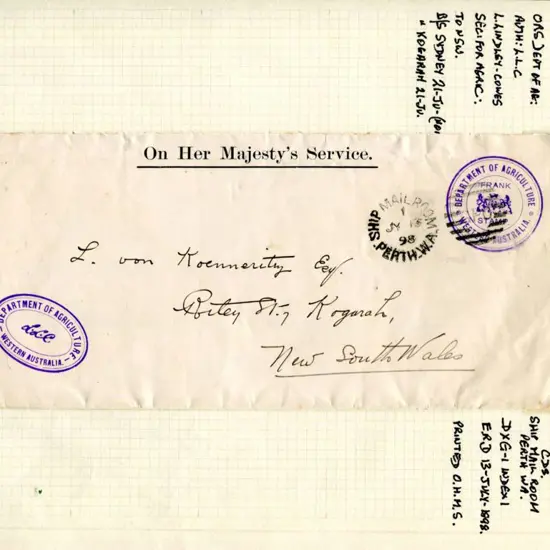 ORG DEPT OF AG:
AUTH: L.L.C
L. LINDLEY-COWES
SEC: FOR AGRIC:
TO NSW.
B/S SYDNEY 21-JU-
" KOGARAH 21-JU.
On Her Majesty's Service.
DEPARTMENT OF AGRICULTURE
FRANK
STAMP
WESTERN AUSTRALIA.
SHIP MAIL ROOM
1
98
PERTH.W.A.
L. von Koenneritz Esq.
Kogarah,
New South Wales
DEPARTMENT OF AGRICULTURE
LLC
WESTERN AUSTRALIA.
CDS.
SHIP MAIL ROOM
PERTH WA.
DXG-1 INDEX 1
ERD 13-JULY-1898.
PRINTED O.H.M.S.